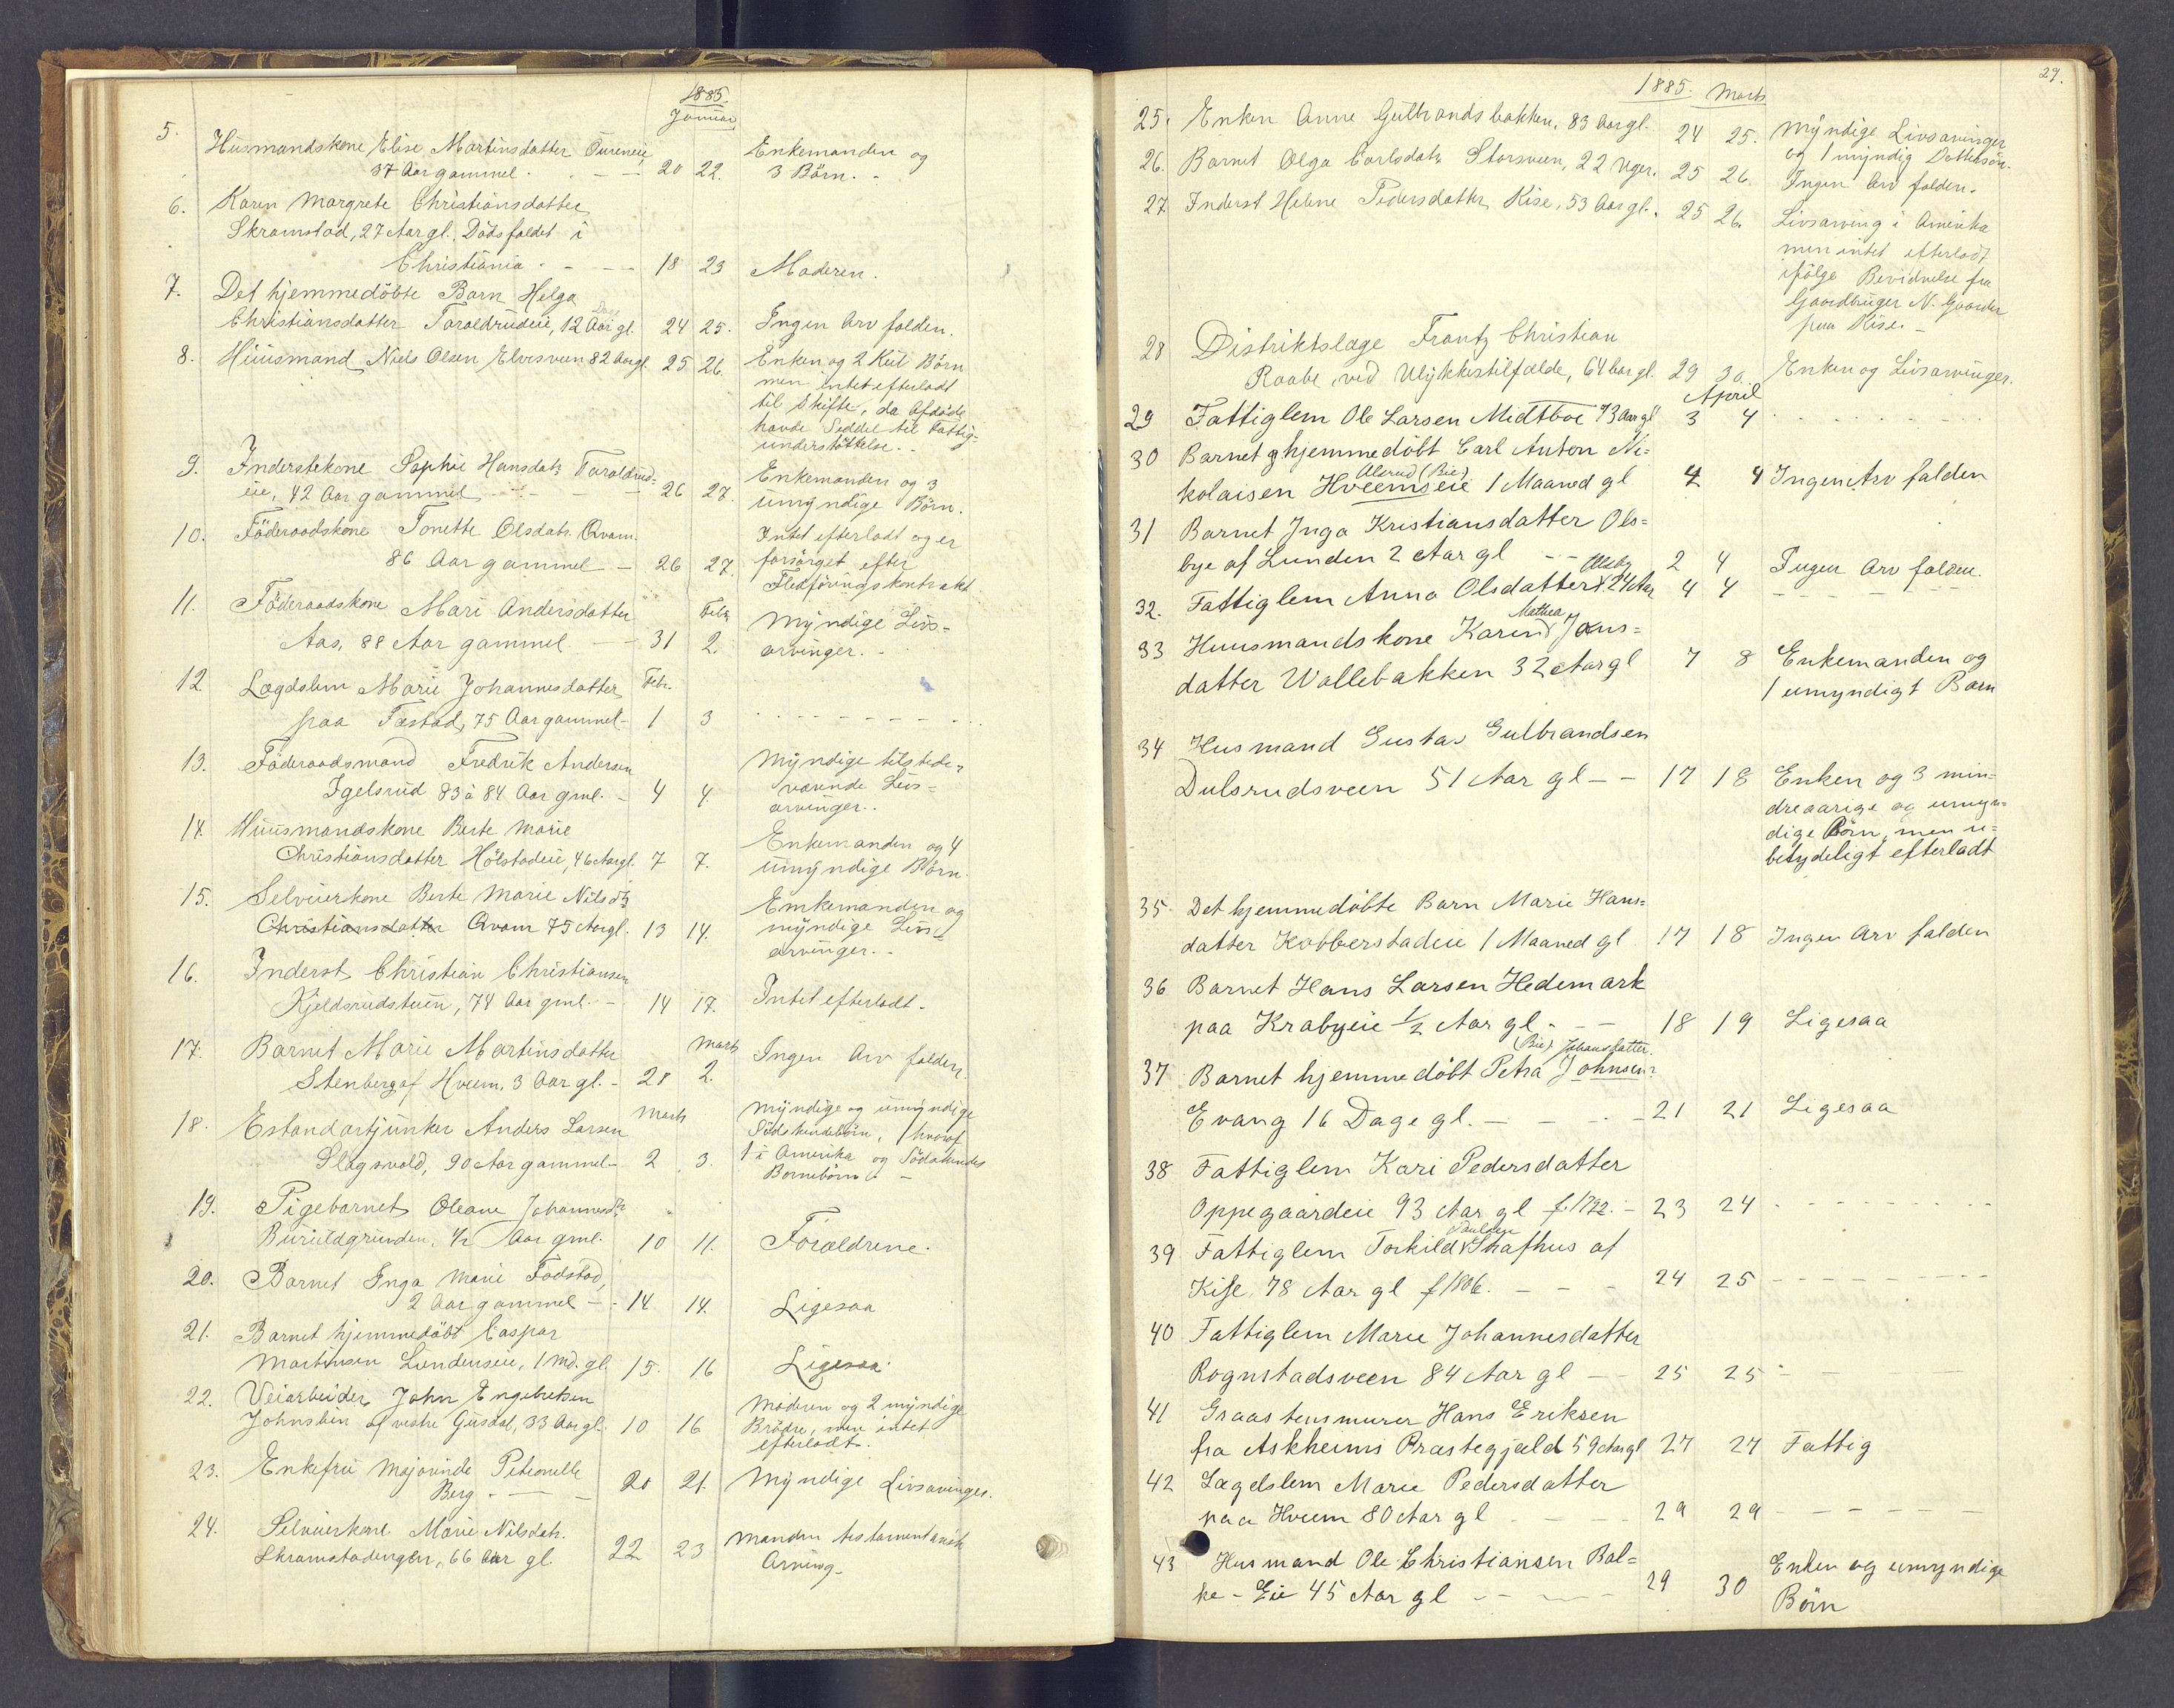 1885.
Januar
5. Huusmandskone Elise Martinsdatter Tureneie
37 Aar gammel. - - 20 22. Enkemanden og
3 Børn. -
6. Karen Margrete Christiansdatter
Skramstad, 27 Aar gl. Dødsfaldet i
Christiania. - - - 18 23 Moderen.
7. Det hjemmedøbte Barn Helga
Christiansdatter Taraldrudeie, 12 Aar gl. 24 25. Ingen Arv falden.
Dage
8. Huusmand Niels Olsen Elvesveen 82 Aar gl. 25 26. Enken og 2 Kuld Børn
men intet efterladt
til Skifte, da Afdøde
havde Seddel til Fattig-
understøttelse. -
9. Inderstekone Sophie Hansdatr Taraldrud-
eie, 42 Aar gammel - - - 26 27. Enkemanden og 3
umyndige Børn.
10. Føderaadskone Tonette Olsdatr. Qvam.
86 Aar gammel - 26 27. Intet efterladt og er
forsørget efter
Fledføringskontrakt
11. Føderaadskone Mari Andersdatter
Febr.
Aas, 88 Aar gammel - - 31 2. Myndige Livs-
arvinger. -
12 Lægdslem Marie Johannesdatter Febr.
paa Fæstad, 75 Aar gammel - 1 3 - - - - - - - -
13. Føderaadsmand Fredrik Andersen
Igelsrud 83 à 84 Aar gml. - 4 4. Myndige tilstede-
værende Livs-
arvinger. -
14. Huusmandskone Berte Marie
Christiansdatter Hølstadeie, 46 Aar gl. 7 7. Enkemanden og 4
umyndige Børn.
15. Selveierkone Berte Marie Nilsdtr
Christiansdatter Qvam 75 Aar gl. 13 14. Enkemanden og
myndige Livs-
arvinger. -
16. Inderst Christian Christiansen
Kjeldsrudstuen, 74 Aar gml. - 14 17. Intet efterladt -
17. Barnet Marie Martinsdatter
Marts
Stenberg af Hveem, 3 Aar gl. - 28 2. Ingen Arv falden.
18. Estandartjunker Anders Larsen Marts
Slagsvold, 90 Aar gammel - 2 3. Myndige og umyndige
Sødskendebørn, hvoraf
1 i Amerika og Sødskendes
Børnebørn. -
19. Pigebarnet Oleane Johannesdtr
Buruldgrunden, 1/2 Aar gml. 10 11. Forældrene.
20. Barnet Inga Marie Fodstad,
2 Aar gammel - - 14 14. Ligesaa
21. Barnet hjemmedøbt Caspar
Martinsen Lundenseie, 1 Md. gl. 15. 16 Ligesaa
22. Veiarbeider John Engebretsen
Johnslien af vestre Gusdal, 33 Aar gl. 10 16 Moderen og 2 myndige
Brødre, men intet
efterladt.
23. Enkefru Majorinde Petronelle
Berg - - - 20 21. Myndige Livsarvinger.
24. Selveierkone Marie Nilsdatr.
Skramstadengen, 66 Aar gl. 22 23 Manden testamentarisk
Arving -
29.
1885. Marts
25. Enken Anne Gulbrandsbakken, 83 Aar gl. 24 25. Myndige Livsarvinger
og 1 myndig Dattersøn.
26. Barnet Olga Carlsdatr Storsveen, 22 Uger. 25 26. Ingen Arv falden.
27. Inderst Helene Pedersdatter Kise, 53 Aar gl. 25 26. Livsarving i Amerika
men intet efterladt
ifølge Bevidnelse fra
Gaardbruger N. Gaarder
paa Kise. -
28 Distriktslæge Frantz Christian
Raabe, ved Ulykkestilfælde, 64 Aar gl. 29 30. Enken og Livsarvinger.
April
29 Fattiglem Ole Larsen Midtboe 73 Aar gl 3 4 - - - - - -
30 Barnet hjemmedøbt Carl Anton Ni-
Alerud (Bie)
kolaisen Hveemseie 1 Maaned gl 4 4 Ingen Arv falden
31 Barnet Inga Kristiansdatter Ols-
bye af Lunden 2 Aar gl - - 2 4 Ingen Arv falden.
32. Fattiglem Anna Olsdatter 74 Aar 4 4 - - - - -
Mathea
33 Huusmandskone Karen Jens-
datter Wollebakken 32 Aar gl 7 8 Enkemanden og
1 umyndigt Barn
34 Husmand Gustav Gulbrandsen
Dulsrudsveen 51 Aar gl - - 17 18 Enken og 3 min-
dreaarige og umyn-
dige Børn, men u-
betydeligt efterladt
35. Det hjemmedøbte Barn Marie Hans-
datter Kobberstadeie 1 Maaned gl 17 18 Ingen Arv falden
36 Barnet Hans Larsen Hedemark
paa Krabyeie 1/2 Aar gl - - - 18 19 Ligesaa
(Bie) Johansdatter.
37 Barnet hjemmedøbt Petra Johnsen?
Evang 16 Dage gl. - - - 21 21 Ligesaa
38 Fattiglem Kari Pedersdatter
Oppegaardeie 93 Aar gl f. 1792. - 23 24 - - - - - -
Paulsen
39 Fattiglem Torkild Skafhus af
Kise, 78 Aar gl f 1806. - - - 24 25 - - - - - -
40 Fattiglem Marie Johannesdatter
Rognstadsveen 84 Aar gl - - 25 25 - - -
41 Graastensmurer Hans Eriksen
fra Askheims Præstegjæld 59 Aar gl 27 27 Fattig
42 Lægdslem Marie Pedersdatter
paa Hveem 80 Aar gl - - - 29 29 - - - - -
43 Husmand Ole Christiansen Bal-
ke-Eie 45 Aar gl - - - 29 30 Enken og umyndige
Børn